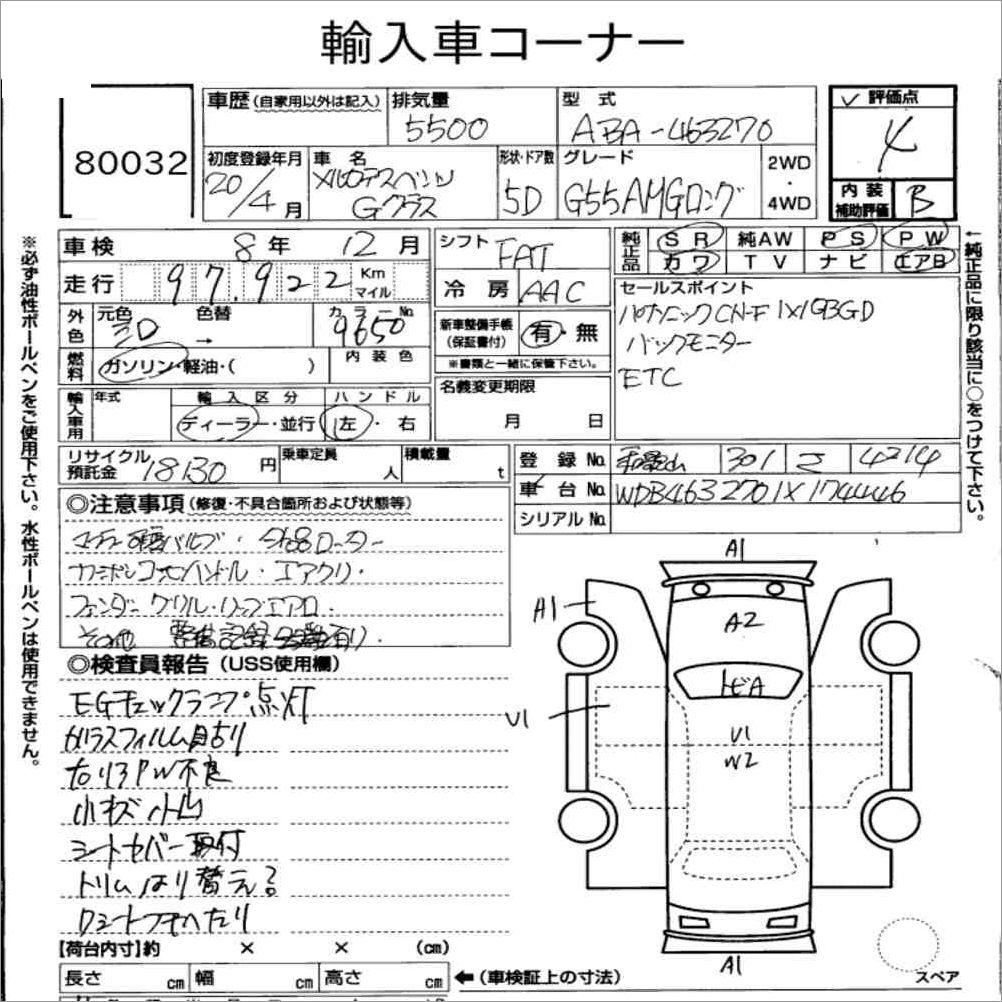 輸入車コーナー
80032
車歴(自家用以外は記入) 排気量 5500
型式 ABA-463270
評価点 4
初度登録年月 20/4月
車名 メルセデスベンツ Gクラス
形状・ドア数 5D
グレード G55AMGロング
2WD・4WD
内装補助評価 B
※必ず油性ボールペンをご使用下さい。水性ボールペンは使用できません。
車検 8年 12月
シフト FAT
純正品 SR 純AW PS PW
カワ TV ナビ エアB
←純正品に限り該当に○をつけて下さい。
走行 97,922 Km マイル
冷房 AAC
セールスポイント
パナソニックCN-F1X10BGD
バックモニター
ETC
外色 元色 色替 → カラーNo. 9650
新車整備手帳(保証書付) 有・無
※書類と一緒に保管下さい。
燃料 ガソリン・軽油・( )
内装色
名義変更期限 月 日
輸入車用 年式 輸入区分 ディーラー・並行
ハンドル 左・右
リサイクル預託金 18130円
乗車定員 人
積載量 t
登録No. 和歌山 301 さ 4214
車台No. WDB4632701X174446
シリアルNo.
◎注意事項(修復・不具合箇所および状態等)
カーボンコンビハンドル・エアクリ・
フェンダー グリル・リップエアロ・
その他 整備記録多数有り.
◎検査員報告(USS使用欄)
EGチェックランプ点灯
ガラスフィルムはり
右リアPW不良
小キズ小凹
シートカバー取付
トリムはり替え?
Dシートフチへたり
A1
A1
A2
トビA
U1
U1
W2
A1
スペア
【荷台内寸】約 × × (cm)
長さ cm 幅 cm 高さ cm ←(車検証上の寸法)